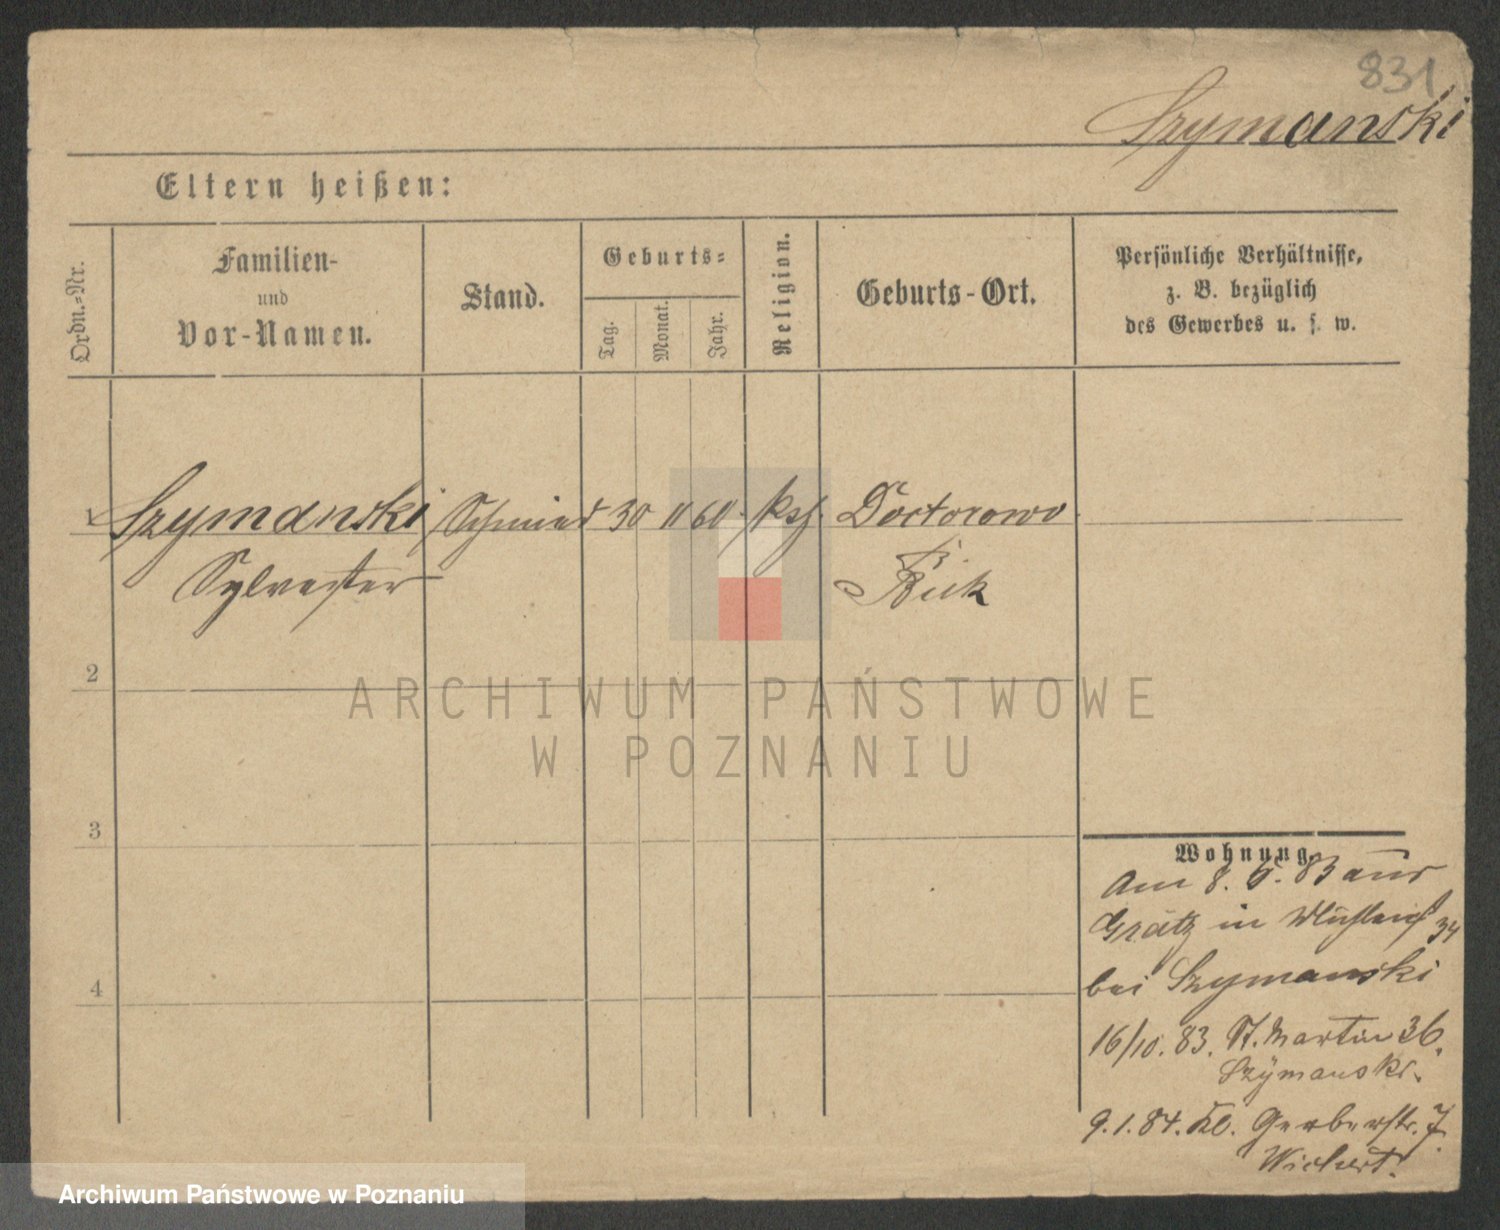 831
Szymanski
Eltern heißen:
Ordn.=Nr.
Familien-
und
Vor-Namen.
Stand.
Geburts=
Tag.
Monat.
Jahr.
Religion.
Geburts-Ort.
Persönliche Verhältnisse,
z. B. bezüglich
des Gewerbes u. s. w.
1 Szymanski Schmied 30 11 60. kth. Doctorowo
Sylvester Kr. Buk
2
3
4
Wohnung.
Am 8. 83 aus
Grätz in 34
bei Szymanski
16/10. 83. St. Martin 36.
Szÿmanski.
9.1.84. Kl. Gerberstr. 7.
Wichert.
ARCHIWUM PAŃSTWOWE
W POZNANIU
Archiwum Państwowe w Poznaniu